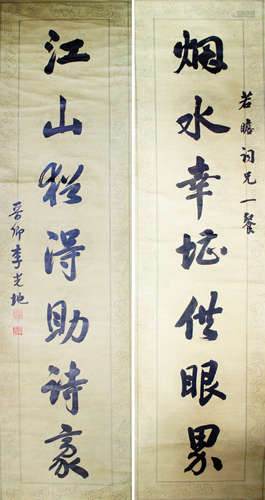 烟水幸堪供眼界
若瞻詞兄一粲
江山猶得助詩豪
晉卿李光地